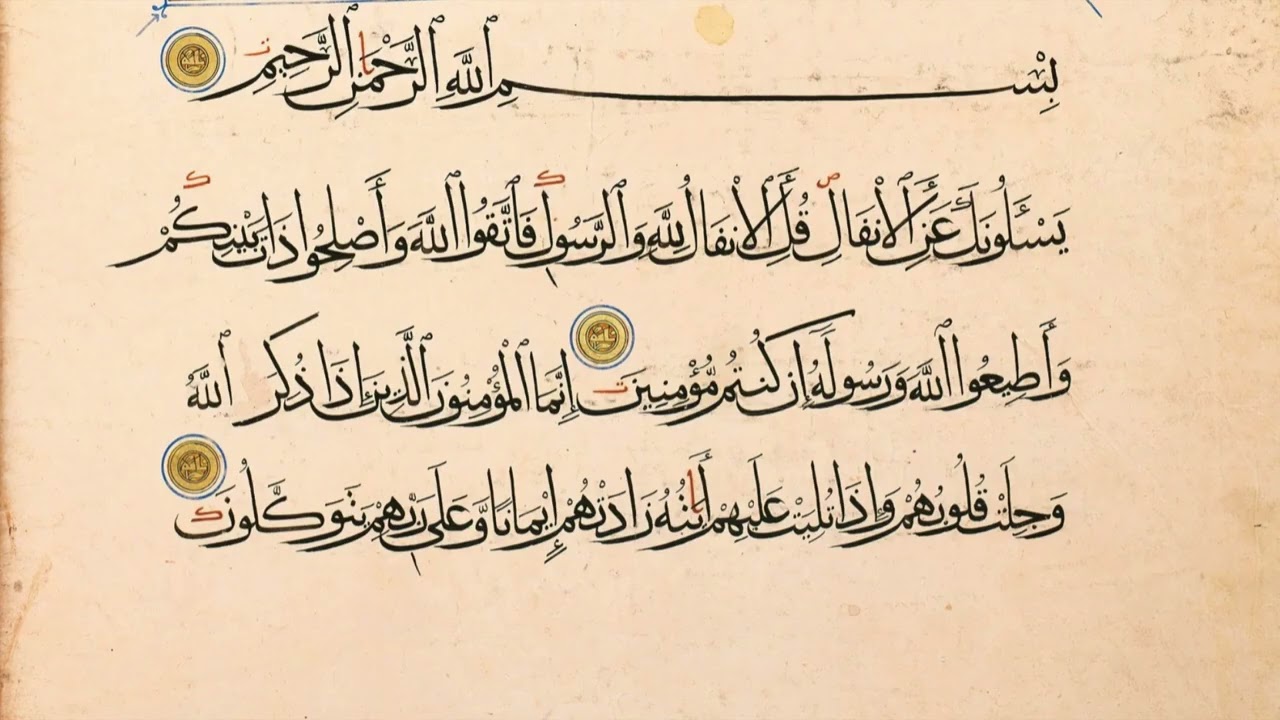 بِسْمِ ٱللَّهِ ٱلرَّحْمَٰنِ ٱلرَّحِيمِ
يَسْـَٔلُونَكَ عَنِ ٱلْأَنفَالِ قُلِ ٱلْأَنفَالُ لِلَّهِ وَٱلرَّسُولِ فَٱتَّقُوا ٱللَّهَ وَأَصْلِحُوا ذَاتَ بَيْنِكُمْ
وَأَطِيعُوا ٱللَّهَ وَرَسُولَهُ إِن كُنتُم مُّؤْمِنِينَ إِنَّمَا ٱلْمُؤْمِنُونَ ٱلَّذِينَ إِذَا ذُكِرَ ٱللَّهُ
وَجِلَتْ قُلُوبُهُمْ وَإِذَا تُلِيَتْ عَلَيْهِمْ آيَٰتُهُ زَادَتْهُمْ إِيمَانًا وَّعَلَىٰ رَبِّهِمْ يَتَوَكَّلُونَ